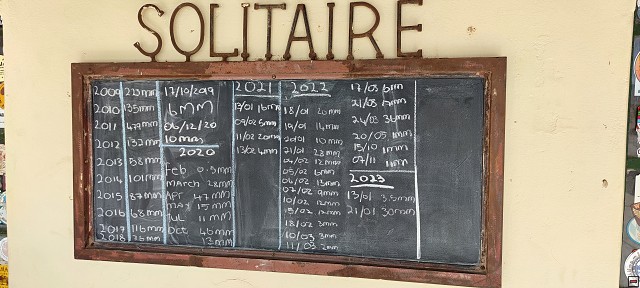 SOLITAIRE
2009 223mm
2010 135mm
2011 479mm
2012 132mm
2013 58mm
2014 101mm
2015 87mm
2016 68mm
2017 116mm
2018
17/10/2019
6MM
06/12/20
10mm
2020
Feb 0.3mm
MARCH 28mm
Apr 47 mm
MAY 15 mm
Jul 11 mm
Oct
12mm
2021
11/02 20mm
13/02 4mm
2022
18/01
19/01 14mm
20/01 10mm
21/01 23mm
04/02 12mm
05/02 6mm
06/02 13mm
07/02 9mm
10/02 12mm
12mm
18/02 3mm
10/03 3mm
11/03 2mm
17/03
21/03
24/03 36mm
20/05 1mm
15/10 1mm
07/11 1mm
2023
13/01 3.5mm
21/01 30mm